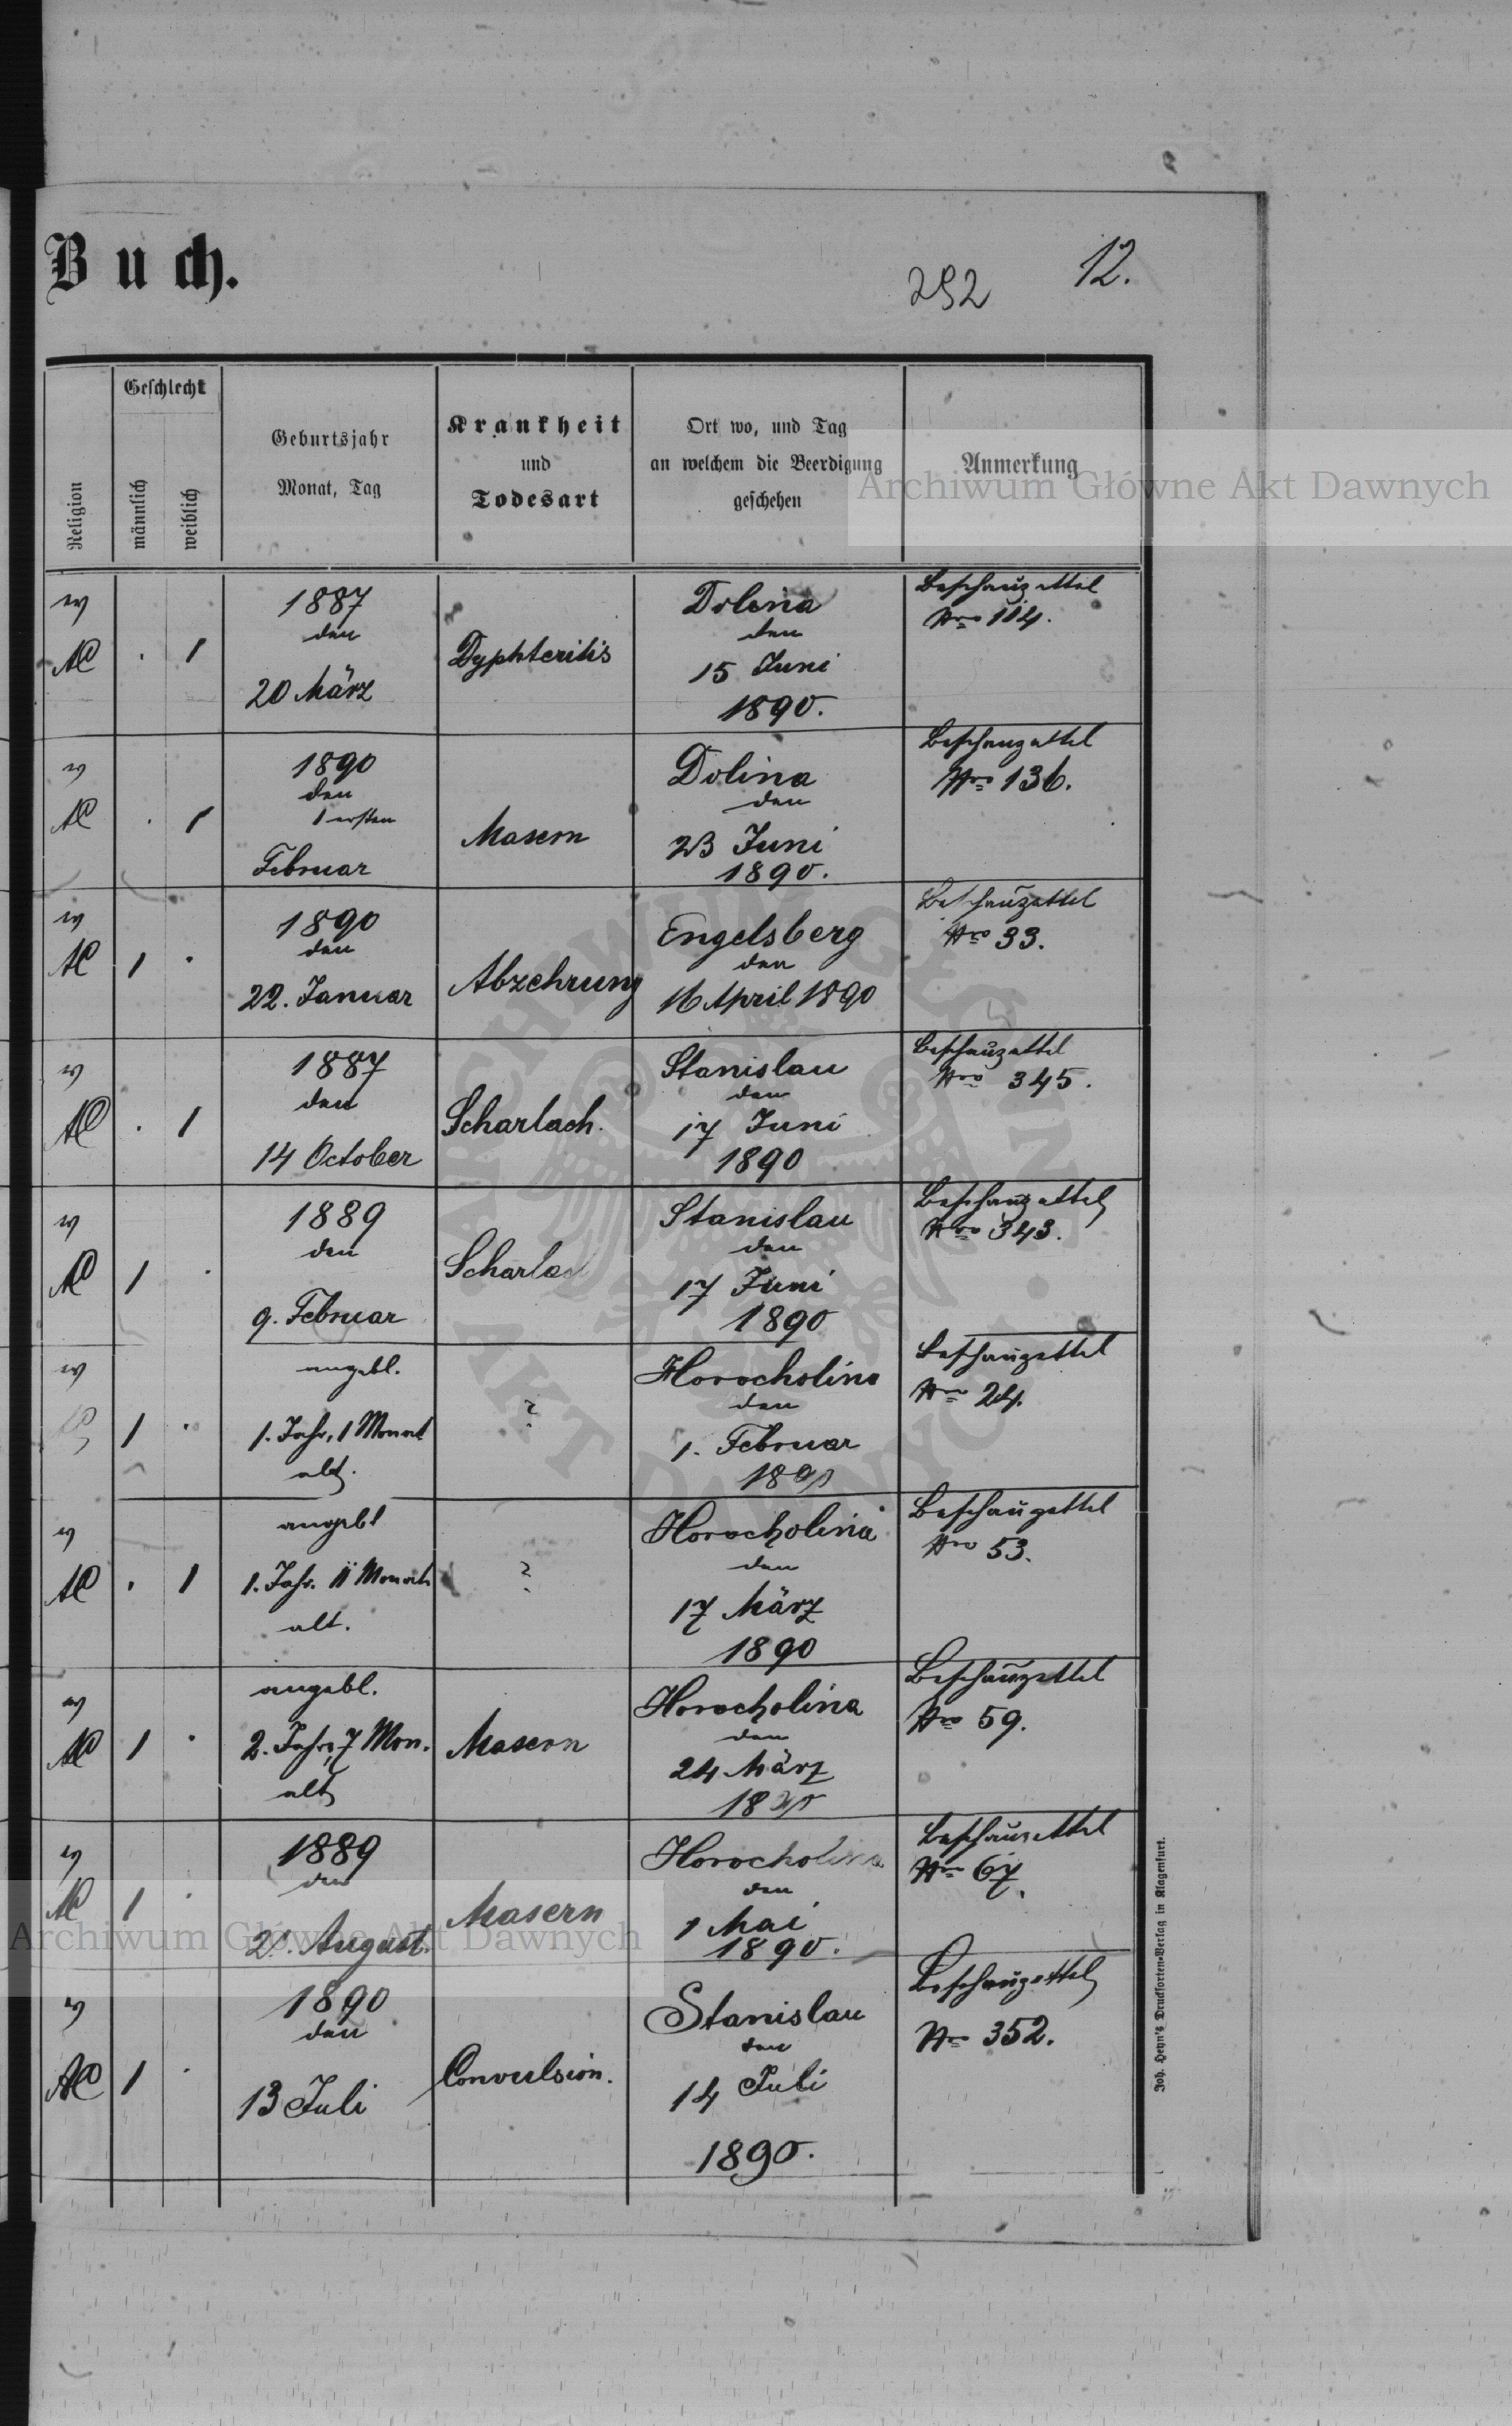 Buch.
292
12.
Religion
Geschlecht
männlich
weiblich
Geburtsjahr
Monat, Tag
Krankheit
und
Todesart
Ort wo, und Tag
an welchem die Beerdigung
geschehen
Anmerkung
Archiwum Główne Akt Dawnych
AC
. 1
1887
den
20 März
Dyphteritis
Dolina
den
15 Juni
1890.
Beschauzettel
Nro 114.
AC
. 1
1890
den
1 ersten
Februar
Masern
Dolina
den
23 Juni
1890.
Beschauzettel
Nro 136.
AC
1 .
1890
den
22. Januar
Abzehrung
Engelsberg
den
16 April 1890
Beschauzettel
Nro 33.
AC
. 1
1887
den
14 October
Scharlach.
Stanislau
den
17 Juni
1890
Beschauzettel
Nro 345.
AC
1 .
1889
den
9. Februar
Scharlach
Stanislau
den
17 Juni
1890
Beschauzettel
Nro 343.
1 .
angebl.
1. Jahr, 1 Monat
alt.
?
Horocholina
den
1. Februar
1890
Beschauzettel
Nro 24.
AC
. 1
angebl
1. Jahr. 11 Monate
alt.
?
Horocholina
den
17 März
1890
Beschauzettel
Nro 53.
AC
1 .
angebl.
2. Jahr, 7 Mon.
alt
Masern
Horocholina
den
24 März
1890
Beschauzettel
Nro 59.
AC
1 .
1889
den
21. August.
Masern
Horocholina
den
1 Mai
1890.
Beschauzettel
Nro 67.
AC
1 .
1890
den
13 Juli
Convulsion.
Stanislau
den
14 Juli
1890.
Beschauzettel
Nro 352.
Archiwum Główne Akt Dawnych
Joh. Heyn's Drucksorten-Verlag in Klagenfurt.
ARCHIWUM GŁÓWNE AKT DAWNYCH